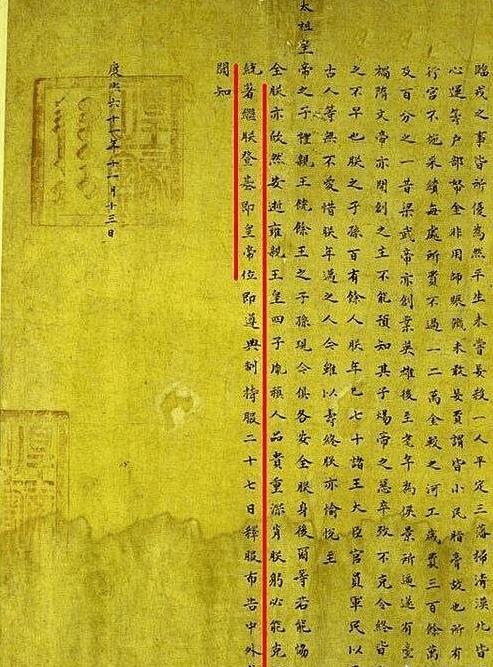 臨戎之事皆所優為然平生未嘗妄殺一人平定三藩掃清漠北皆
心運籌户部帑金非用師賑饑未敢妄費謂皆小民脂膏故也所有
行宫不施采繢每處所費不過一二萬金較之河工歲費三百餘萬
及百分之一昔梁武帝亦創業英雄後至耄年為侯景所逼遂有臺
禍隋文帝亦開創之主不能預知其子煬帝之惡卒致不克令終皆
之不早也朕之子孫百有餘人朕年已七十諸王大臣官員軍民以
古人等無不愛惜朕年邁之人今雖以壽終朕亦愉悦至
太祖皇帝之子禮親王饒餘王之子孫現今俱各安全朕身後爾等若能恊
全朕亦欣然安逝雍親王皇四子胤禛人品貴重深肖朕躬必能克
統著繼朕登基即皇帝位即遵典制持服二十七日釋服布告中外
聞知
康熙六十一年十一月十三日